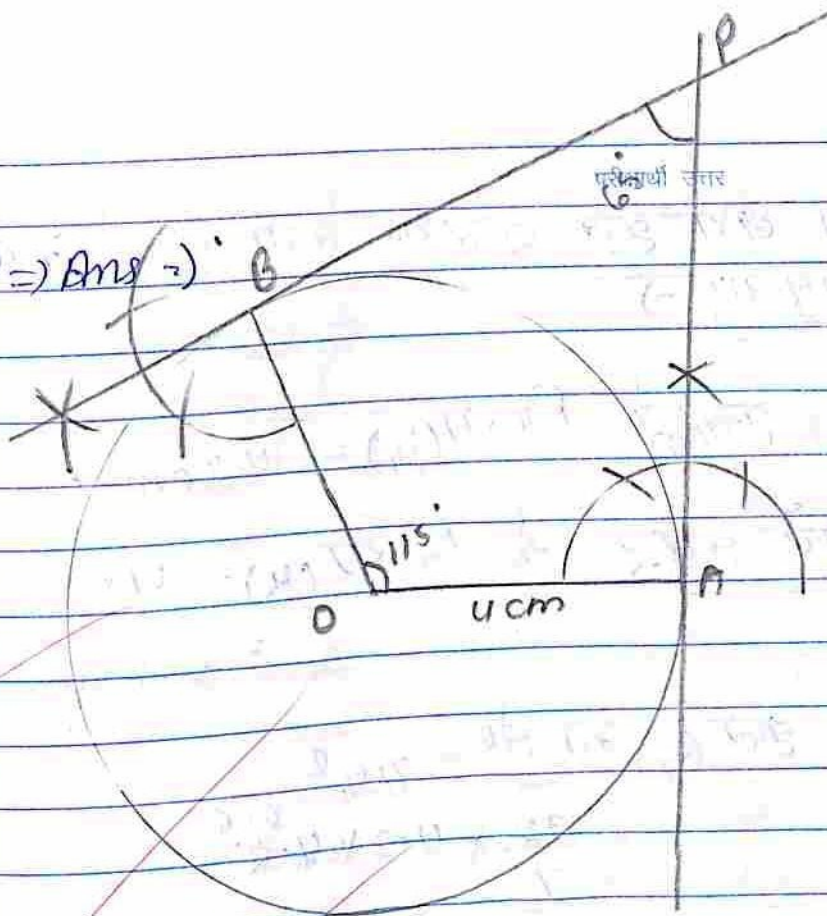 P
परीक्षार्थी उत्तर
=) Ans =)
B
115°
O
4 cm
A